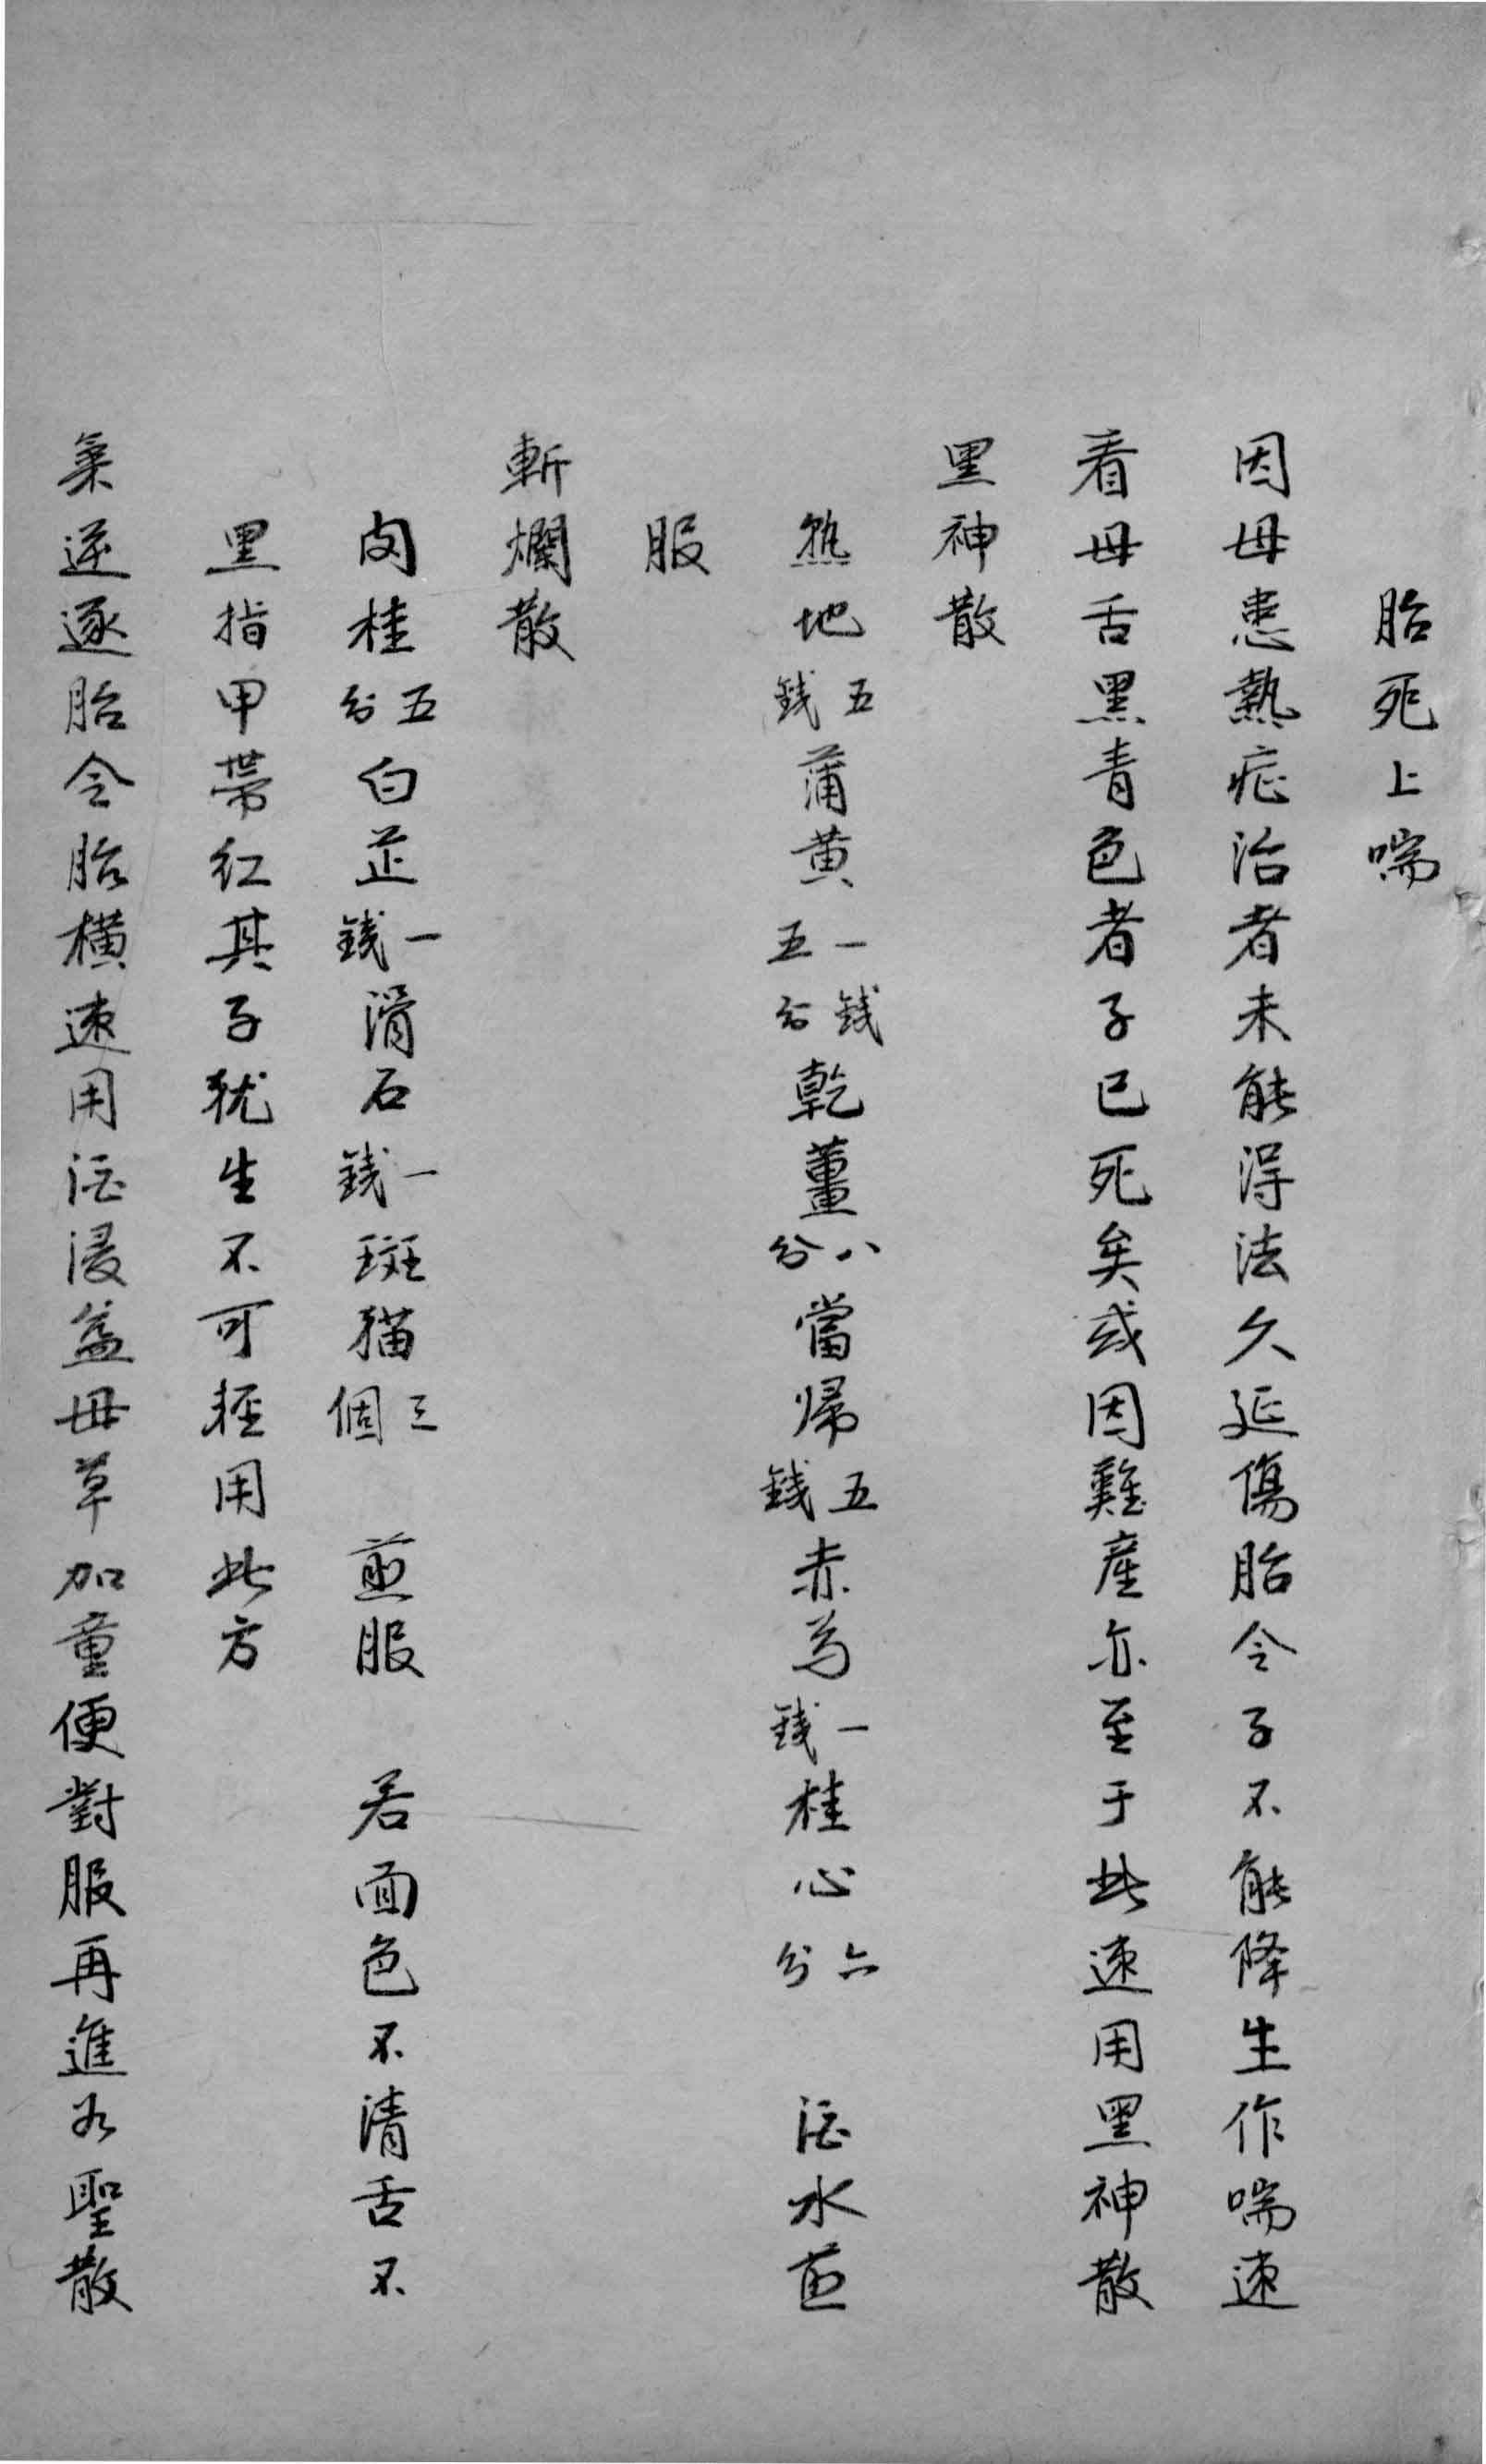 胎死上喘
因母患熱症治者未能得法久延傷胎令子不能降生作喘速
看母舌黑青色者子已死矣或因難産亦至于此速用黑神散
黑神散
熟地五錢蒲黄一錢五分乾薑八分當帰五錢赤芍一錢桂心六分　酒水煎
服
斬爛散
肉桂五分白芷一錢滑石一錢斑猫三個　煎服　若面色不清舌不
黑指甲帯红其子犹生不可軽用此方
氣逆逐胎令胎橫速用酒浸益母草加童便對服再進聖散